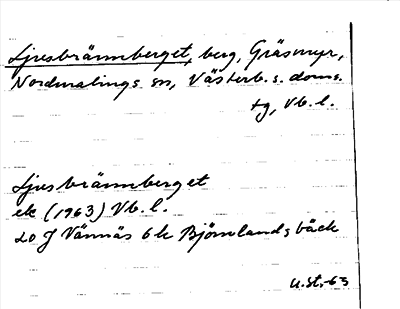 Ljusbrännberget, berg, Gräsmyr,
Nordmalings sn, Västerb. s. doms.
tg, Vb. l.
Ljusbrännberget
ek (1963) Vb. l.
20 J Vännäs 6 k Björnlandsbäck
U.St.-63